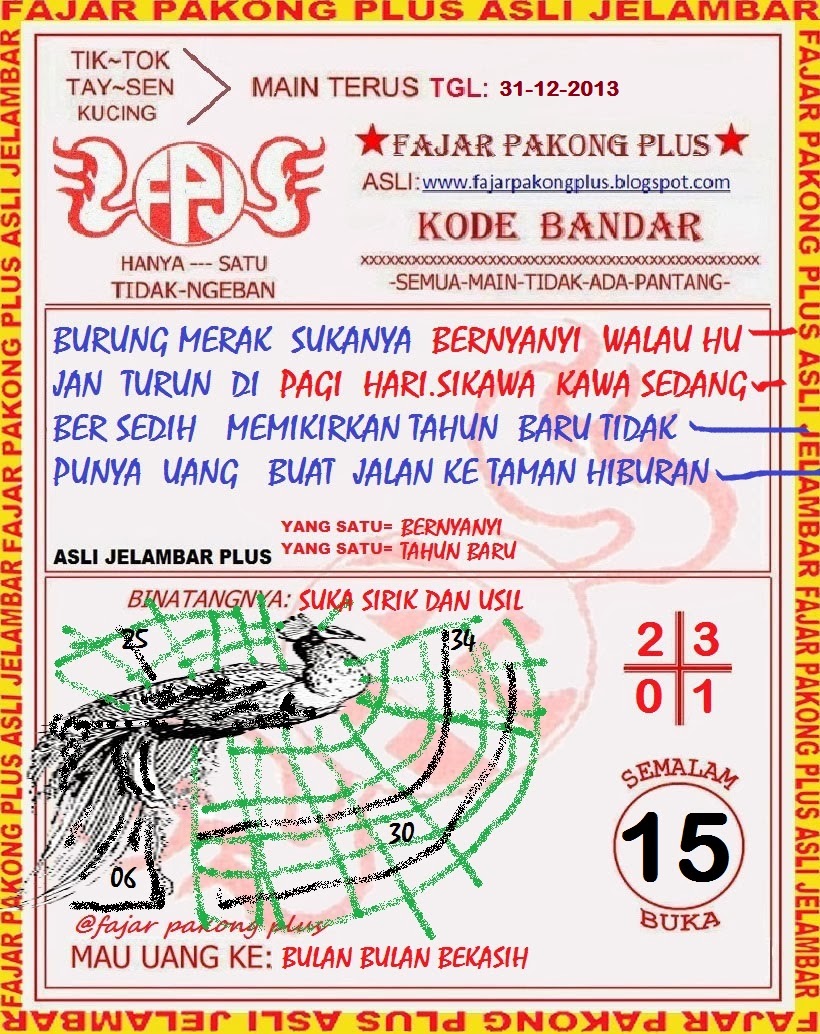 FAJAR PAKONG PLUS ASLI JELAMBAR
TIK~TOK
TAY~SEN
KUCING
MAIN TERUS TGL: 31-12-2013
FPJ
HANYA --- SATU
TIDAK-NGEBAN
★FAJAR PAKONG PLUS★
ASLI:www.fajarpakongplus.blogspot.com
KODE BANDAR
xxxxxxxxxxxxxxxxxxxxxxxxxxxxxxxxxxxxxxxxxxxxxxxxxx
-SEMUA-MAIN-TIDAK-ADA-PANTANG-
BURUNG MERAK SUKANYA BERNYANYI WALAU HU
JAN TURUN DI PAGI HARI.SIKAWA KAWA SEDANG
BER SEDIH MEMIKIRKAN TAHUN BARU TIDAK
PUNYA UANG BUAT JALAN KE TAMAN HIBURAN
YANG SATU= BERNYANYI
ASLI JELAMBAR PLUS YANG SATU= TAHUN BARU
BINATANGNYA: SUKA SIRIK DAN USIL
25
34
30
06
2 3
0 1
SEMALAM
15
BUKA
@fajar pakong plus
MAU UANG KE: BULAN BULAN BEKASIH
FAJAR PAKONG PLUS ASLI JELAMBAR FAJAR PAKONG PLUS ASLI JELAMBAR
FAJAR PAKONG PLUS ASLI JELAMBAR FAJAR PAKONG PLUS ASLI JELAMBAR
FAJAR PAKONG PLUS ASLI JELAMBAR